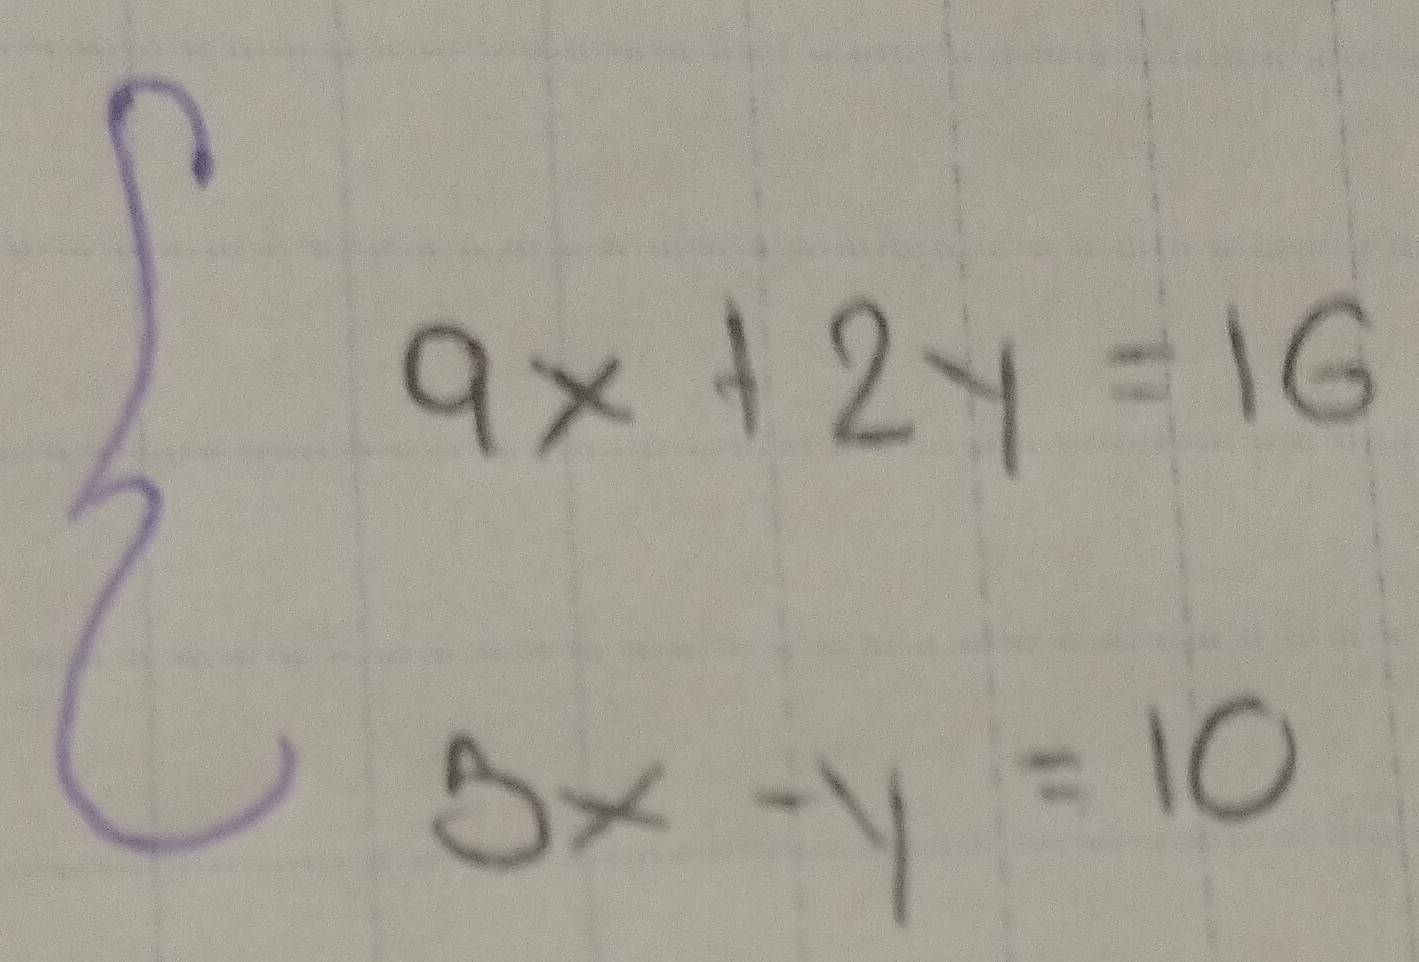 9x + 2y = 16
3x - y = 10